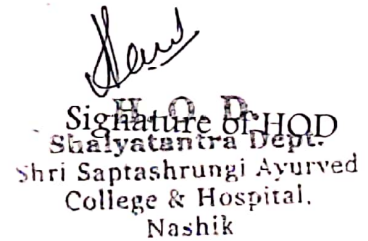 H. O. D.
Signature of HOD
Shalyatantra Dept.
Shri Saptashrungi Ayurved
College & Hospital,
Nashik